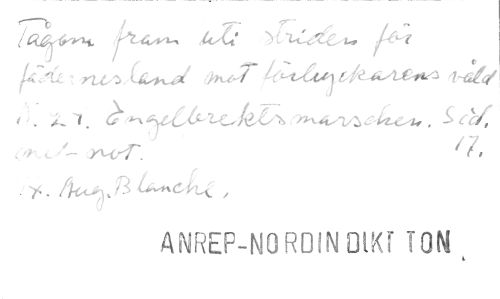 Tågom fram uti striden för
fädernesland mot förtryckarens våld
N. 21. Engelbrektsmarschen. Sid.
med not. 17.
Aug. Blanche.
ANREP-NORDIN DIKT TON